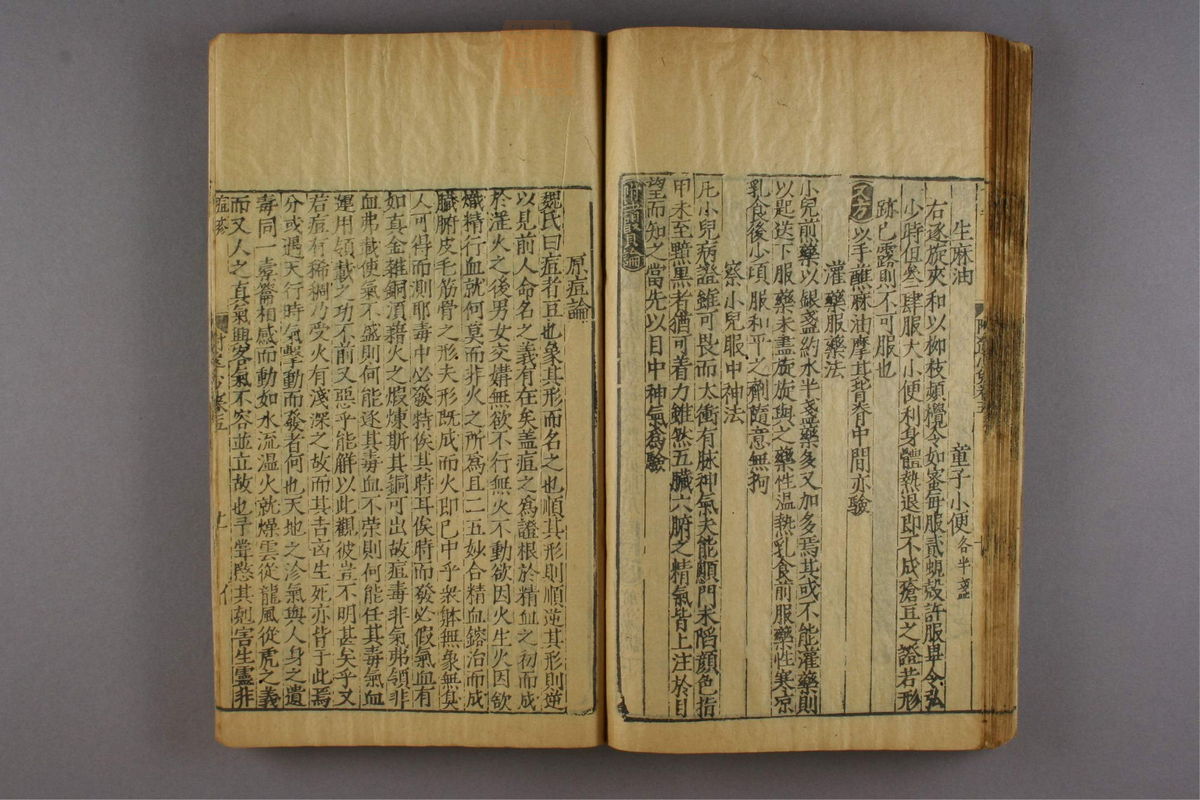 生麻油　童子小便各半盞
右逐旋夾和以柳枝頻攪令如蜜每服貳蜆殼許服畢令臥
少時但三四服大小便利身體熱退即不成瘡豆之證若形
跡已露則不可服也
又方以手蘸麻油摩其背脊中間亦驗
灌藥服藥法
小兒前藥以銀盞約水半盞藥多又加多焉其或不能灌藥則
以匙送下服藥未盡旋旋與之藥性溫熱乳食前服藥性寒凉
乳食後少頃服和平之劑隨意無拘
察小兒服中神法
凡小兒病證雖可畏而太衝有脉神氣未脫顖門未陷顏色指
甲未至黯黑者猶可着力雖然五臟六腑之精氣皆上注於目
望而知之當先以目中神氣為驗
原痘論
魏氏曰痘者豆也象其形而名之也順其形則順逆其形則逆
以見前人命名之義有在矣盖痘之為證根於精血之初而成
於淫火之後男女交媾無欲不行無火不動欲因火生火因欲
熾精行血就何莫而非火之所為且二五妙合精血鎔冶而成
臟腑皮毛筋骨之形夫形既成而火即已中乎衆體無象無臭
人可得而測耶毒中必發特俟其時耳俟時而發必假氣血有
如真金雜銅須藉火之煆煉斯其銅可出故痘毒非氣弗領非
血弗載使氣不盛則何能逐其毒血不荣則何能任其毒氣血
運用領載之功不前又惡乎能解以此觀彼豈不明甚矣乎又
若痘有稀稠乃受火有淺深之故而其吉凶生死亦皆于此焉
分或遇天行時氣擊動而發者何也天地之沴氣與人身之遺
毒同一橐籥相感而動如水流温火就燥雲從龍風從虎之義
而又人之真氣與客氣不容並立故也予嘗愍其剋害生靈非